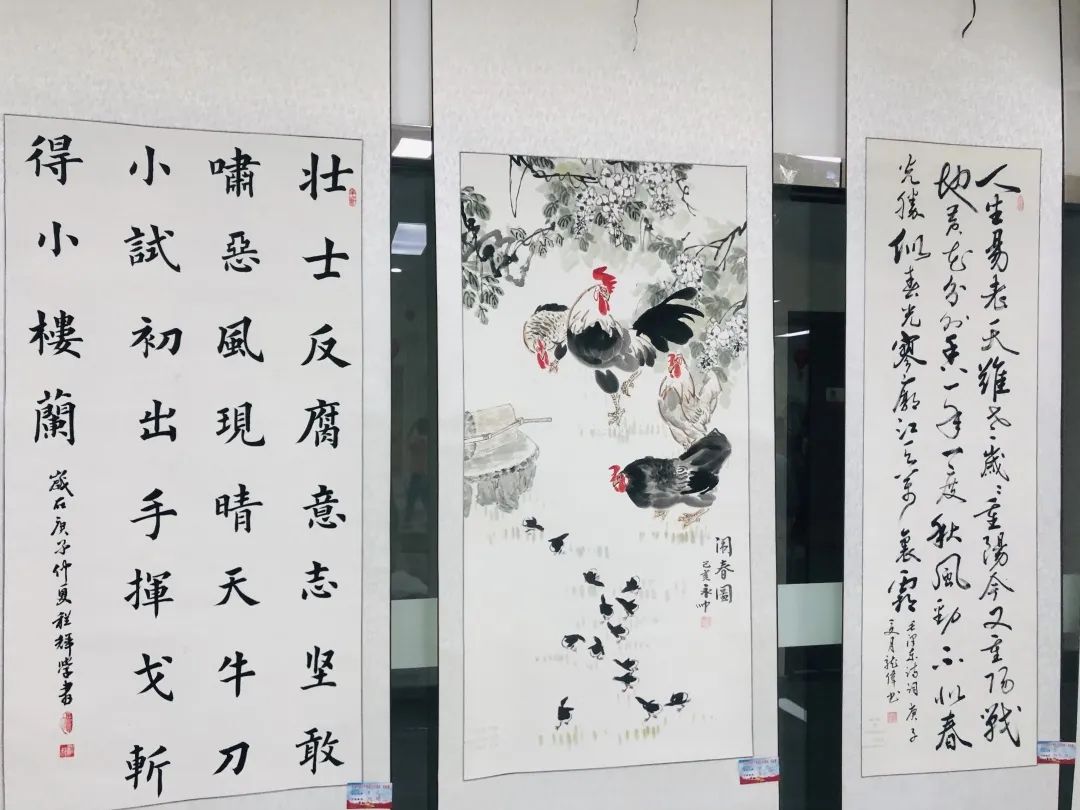 壮士反腐意志坚敢
嘯惡風現晴天牛刀
小試初出手揮戈斬
得小樓蘭
歲在庚子仲夏程輝学書
闹春圖
己亥
人生易老天難老歲〻重陽今又重阳戰
地黄花分外香一年一度秋風勁不似春
光勝似春光寥廓江天万裏霜
毛澤东诗词庚子
月龍偉书